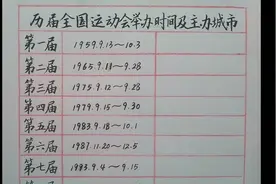 历届全国运动会举办时间及主办城市
第一届 1959.9.13~10.3
第二届 1965.9.11~9.28
第三届 1975.9.12~9.28
第四届 1979.9.15~9.30
第五届 1983.9.18~10.1
第六届 1987.11.20~12.5
第七届 1983.9.4~9.15